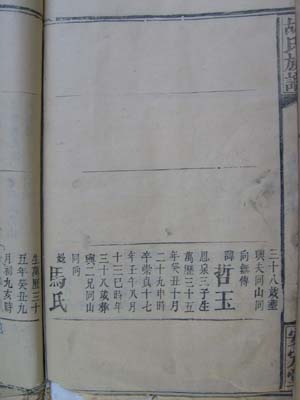 胡氏族譜
安定堂
三十八歲葬
與夫同山同
向無傳
諱哲玉
恩泉三子生
萬曆三十五
年癸丑十月
二十九申時
卒崇禎十七
年壬午八月
十三巳時年
三十八歲葬
與二兄同山
同向
娶馬氏
生萬曆三十
五年癸丑九
月初九亥時